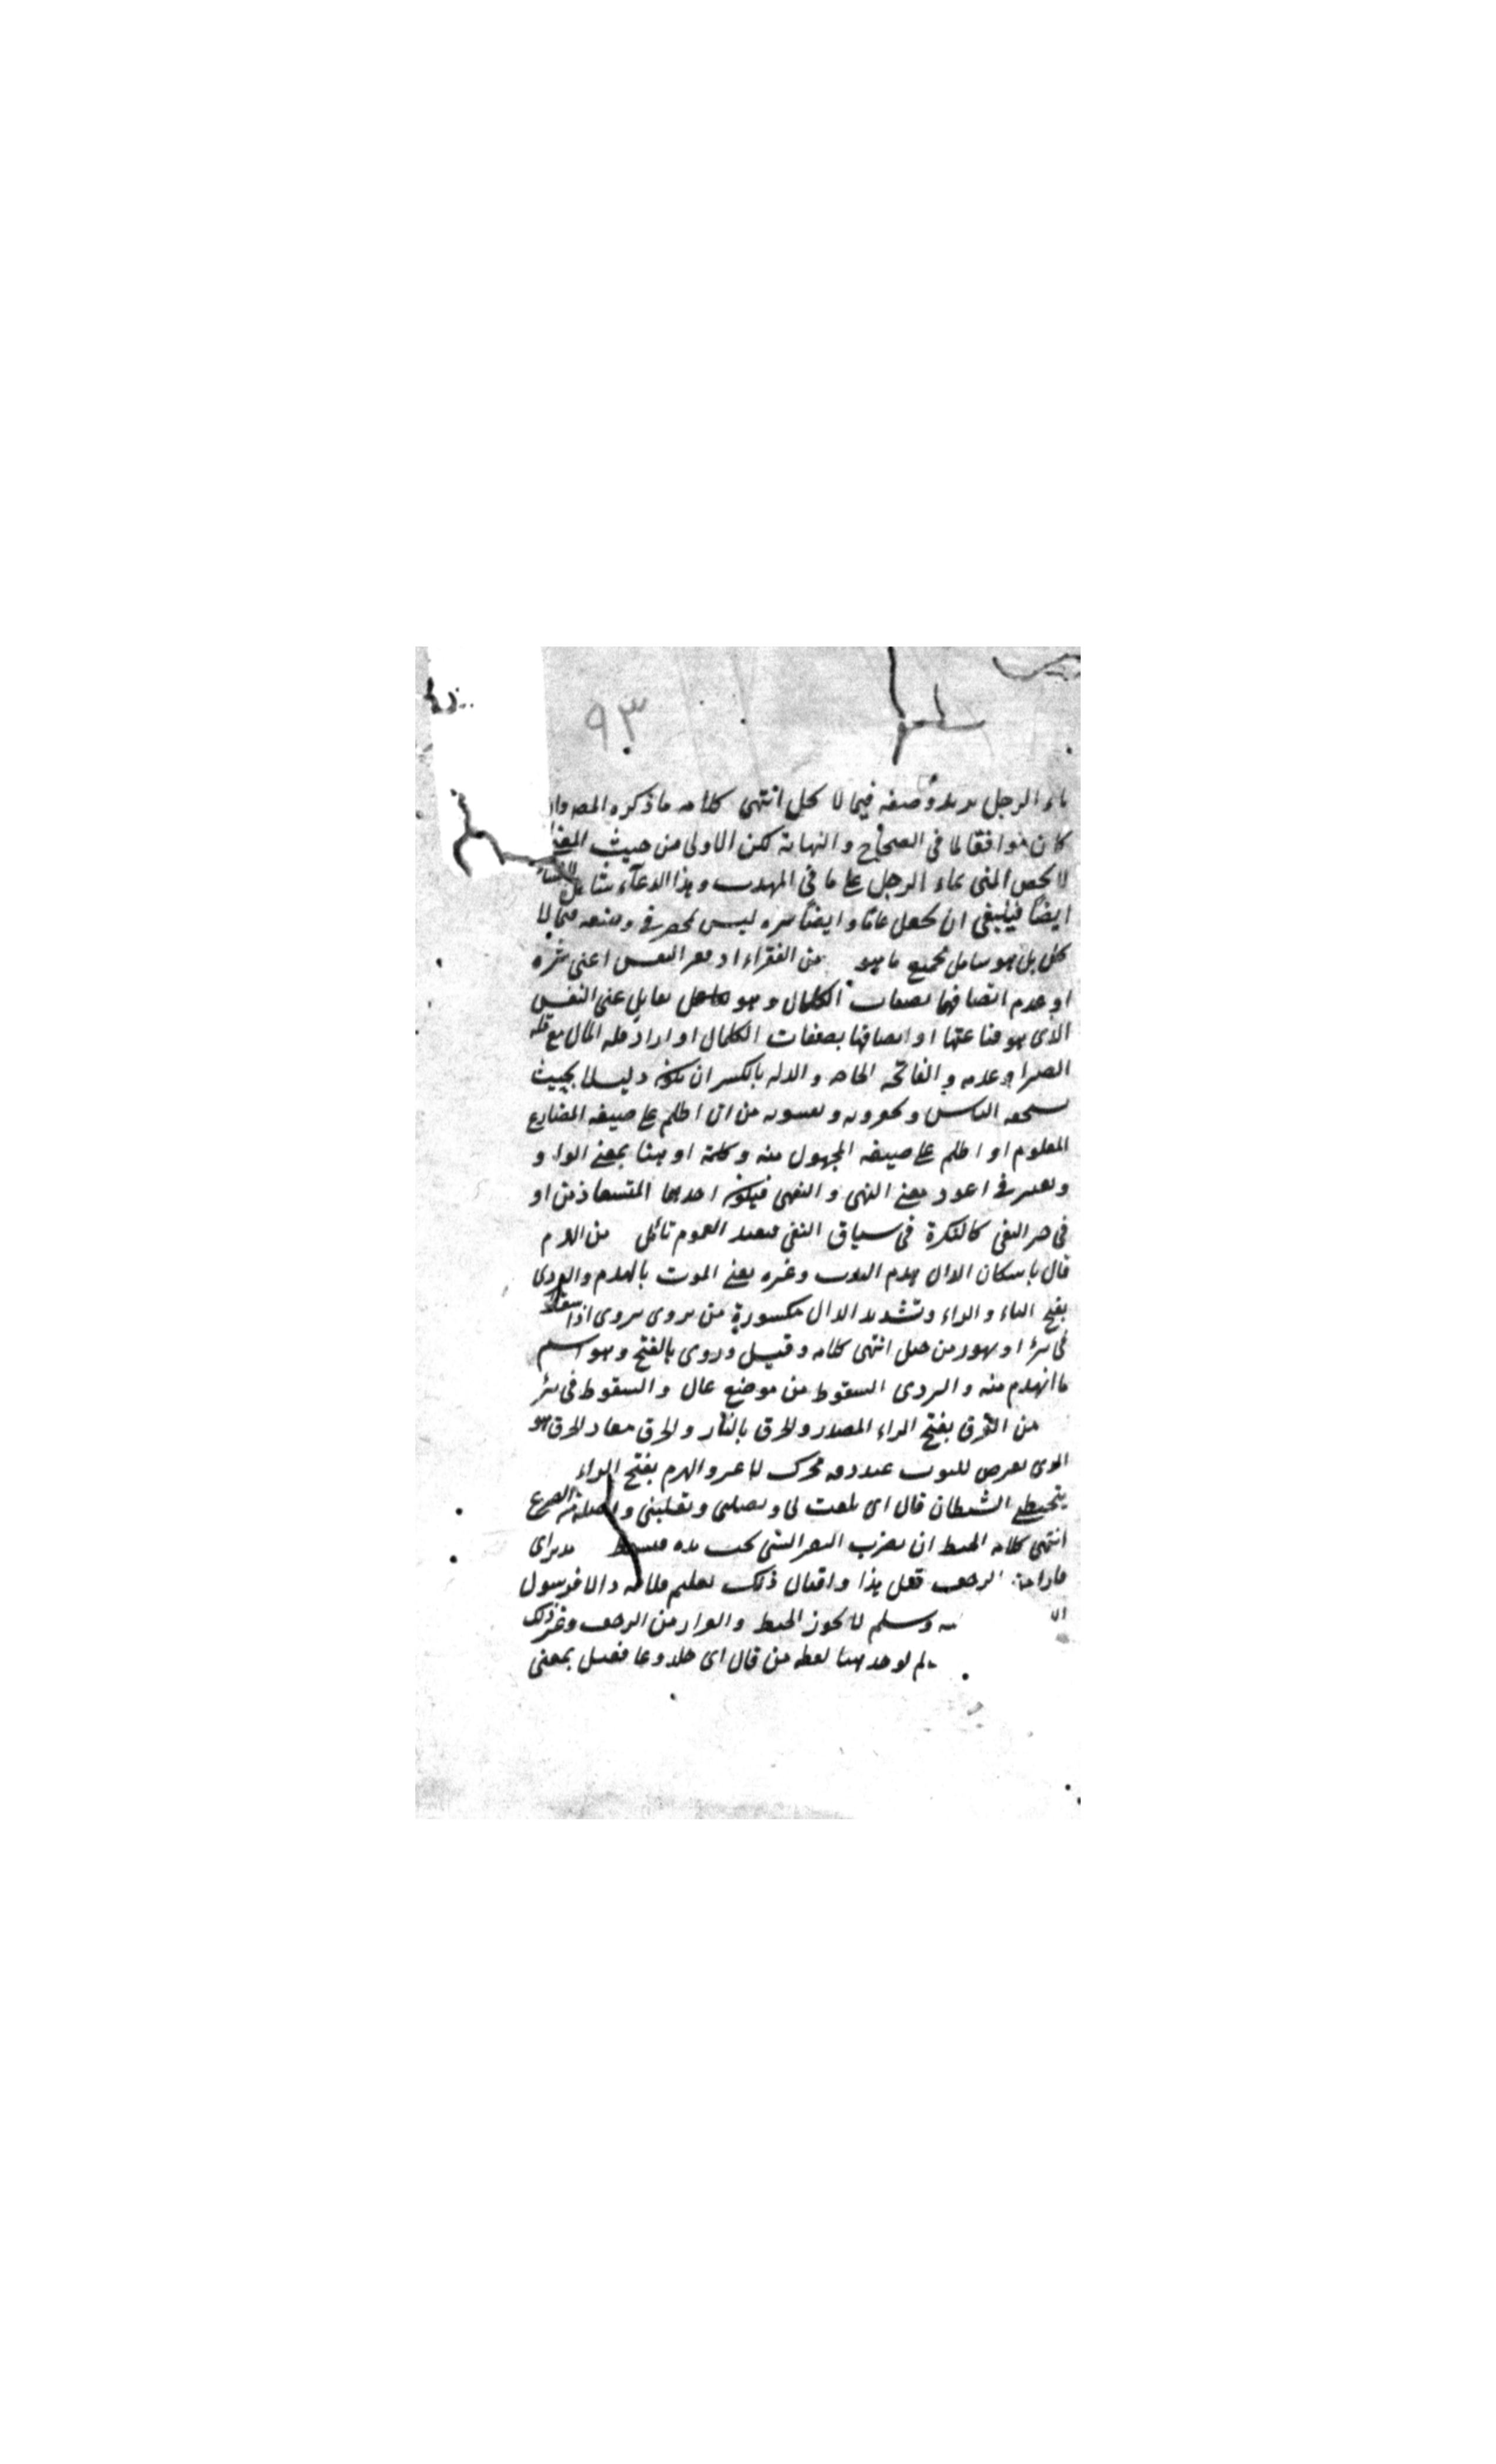 ٩٣
ماء الرجل يريد وضعه فيما لا يحل انتهى كلامه ما ذكره المص وان
كان موافقا لما في الصحاح والنهاية لكن الاولى من حيث المعنى
لا يخص المني بماء الرجل على ما في المهذب وهذا الدعاء شامل للنساء
ايضا فينبغي ان يجعل عاما وايضا شره ليس بمحصر في وضعه فيما لا
يحل بل هو شامل لجميع ما هو من الفقر اراد فقر النفس اعني شره
او عدم اتصافها بصفات الكمال وهو يقابل غنى النفس
الذي هو قناعتها او اتصافها بصفات الكمال او اراد قلة المال مع قلة
الصبر او عدمه والفاقة الحاجة والذلة بالكسر ان يكون ذليلا بحيث
يستخفه الناس ويحقرونه من ان اظلم على صيغة المضارع
المعلوم او اظلم على صيغة المجهول منه وكلمة او هنا بمعنى الواو
ويعتبر في اعوذ معنى النهي والنفي فيكون احدهما المستعاذ من او
في حيز النفي كالنكرة في سياق النفي فيفيد العموم تأمل من الهدم
قال باسكان الدال هدم البيوت وغيره يعني الموت بالهدم والتردي
بفتح التاء والراء وتشديد الدال مكسورة من تردى يتردى اذا سقط
في بئر او تهور من جبل انتهى كلامه وقيل وروي بالفتح وهو اسم
ما انهدم منه والتردي السقوط من موضع عال والسقوط في بئر
من الغرق بفتح الراء المصدر والحرق بالنار والحرق الحرق هو
الذي يعرض للثوب عند دقه محرك لا غير والهرم بفتح الراء
يتخبطني الشيطان قال اي يلعب بي انتهى كلامه الخبط ان يضرب البعير الشيء بخف يده فيسقط
الزحف قيل هذا وامثال ذلك تعليم للامة والا فرسول
وسلم لا يجوز الخبط والفرار من الزحف وغير ذلك
لم يوجد هنا لفظة من قال اي فعيل بمعنى